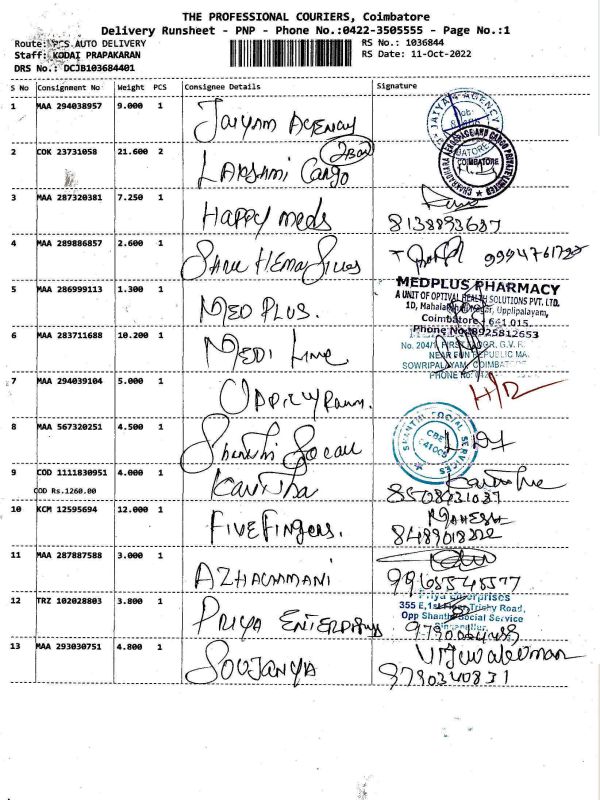 THE PROFESSIONAL COURIERS, Coimbatore
Delivery Runsheet - PNP - Phone No.:0422-3505555 - Page No.:1
Route: PCS AUTO DELIVERY
RS No.: 1036844
Staff: KODAI PRAPAKARAN
RS Date: 11-Oct-2022
DRS No.: DCJB103684401
S No Consignment No Weight PCS Consignee Details Signature
1 MAA 294038957 9.000 1 JAIYAM AGENCY
JAIYAM AGENCY
2 COK 23731058 21.600 2 LAKSHMI Cargo 2BOX
COIMBATORE
3 MAA 287320381 7.250 1 HAPPY meds
8138893687
4 MAA 289886857 2.600 1
5 MAA 286999113 1.300 1 MED PLUS.
MEDPLUS PHARMACY
A UNIT OF OPTIVAL HEALTH SOLUTIONS PVT. LTD.
Uppilipalayam,
Coimbatore - 641 015.
Phone No:8925812653
6 MAA 283711688 10.200 1 MEDI Line
SOWRIPALAYAM, COIMBATORE
7 MAA 294039104 5.000 1
8 MAA 567320251 4.500 1 Shanthi Social
SHANTHI SOCIAL SERVICES
9 COD 1111830951 4.000 1 Kavitha
COD Rs.1260.00
10 KCM 12595694 12.000 1 FIVE Fingers.
MAHESH
11 MAA 287887588 3.000 1
12 TRZ 102028803 3.800 1 PRIYA ENTERPRISES
Priya Enterprises
355 E,1st Floor,Trichy Road,
Opp Shanthi Social Service
13 MAA 293030751 4.800 1 SOUJANYA
9790340831